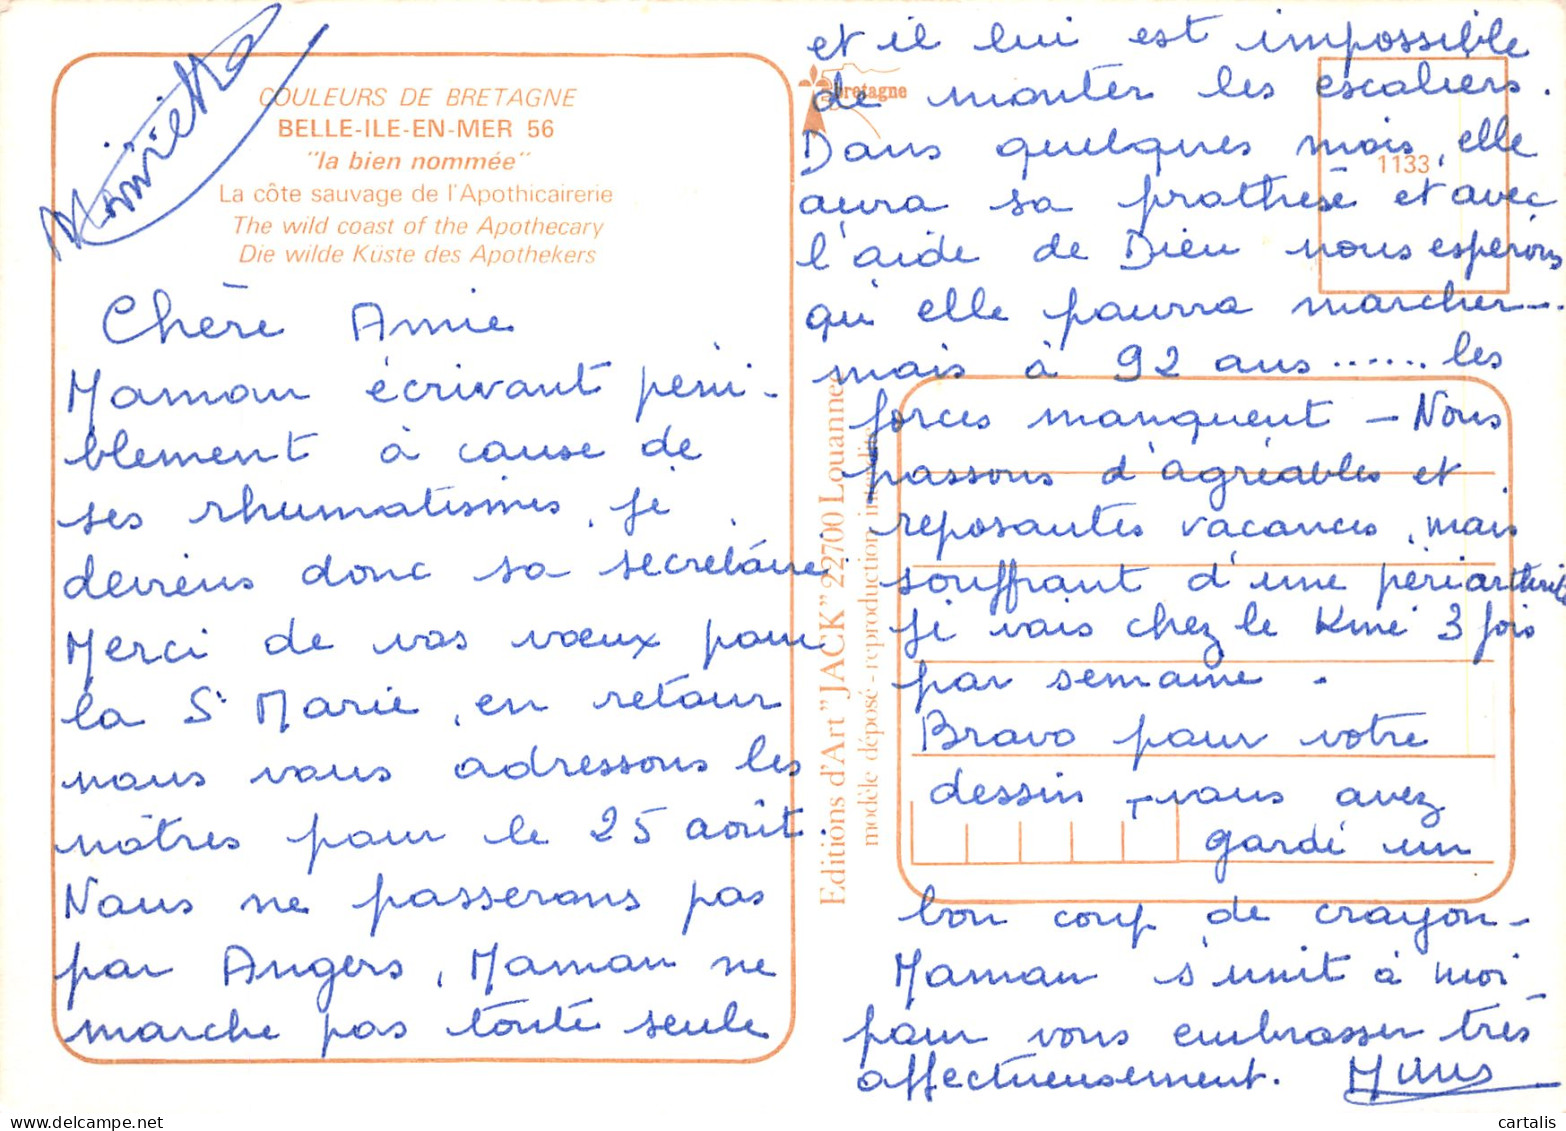 COULEURS DE BRETAGNE
BELLE-ILE-EN-MER 56
"la bien nommée"
La côte sauvage de l'Apothicairerie
The wild coast of the Apothecary
Die wilde Küste des Apothekers
Chère Amie
Maman écrivant péni-
blement à cause de
ses rhumatismes, je
deviens donc sa secrétaire
Merci de vos vœux pour
la Ste Marie, en retour
nous vous adressons les
nôtres pour le 25 août.
Nous ne passerons pas
par Angers, Maman ne
marche pas toute seule
et il lui est impossible
de monter les escaliers.
Dans quelques mois, elle
aura sa prothèse et avec
l'aide de Dieu nous espérons
qu'elle pourra marcher...
mais à 92 ans ...... les
forces manquent - Nous
passons d'agréables et
reposantes vacances, mais
souffrant d'une périarthrite
je vais chez le Kiné 3 fois
par semaine.
Bravo pour votre
dessin, vous avez
gardé un
bon coup de crayon -
Maman s'unit à moi
pour vous embrasser très
affectueusement.
bretagne
1133
Editions d'Art "JACK" 22700 Louannec
modèle déposé - reproduction interdite
cartalis
www.delcampe.net